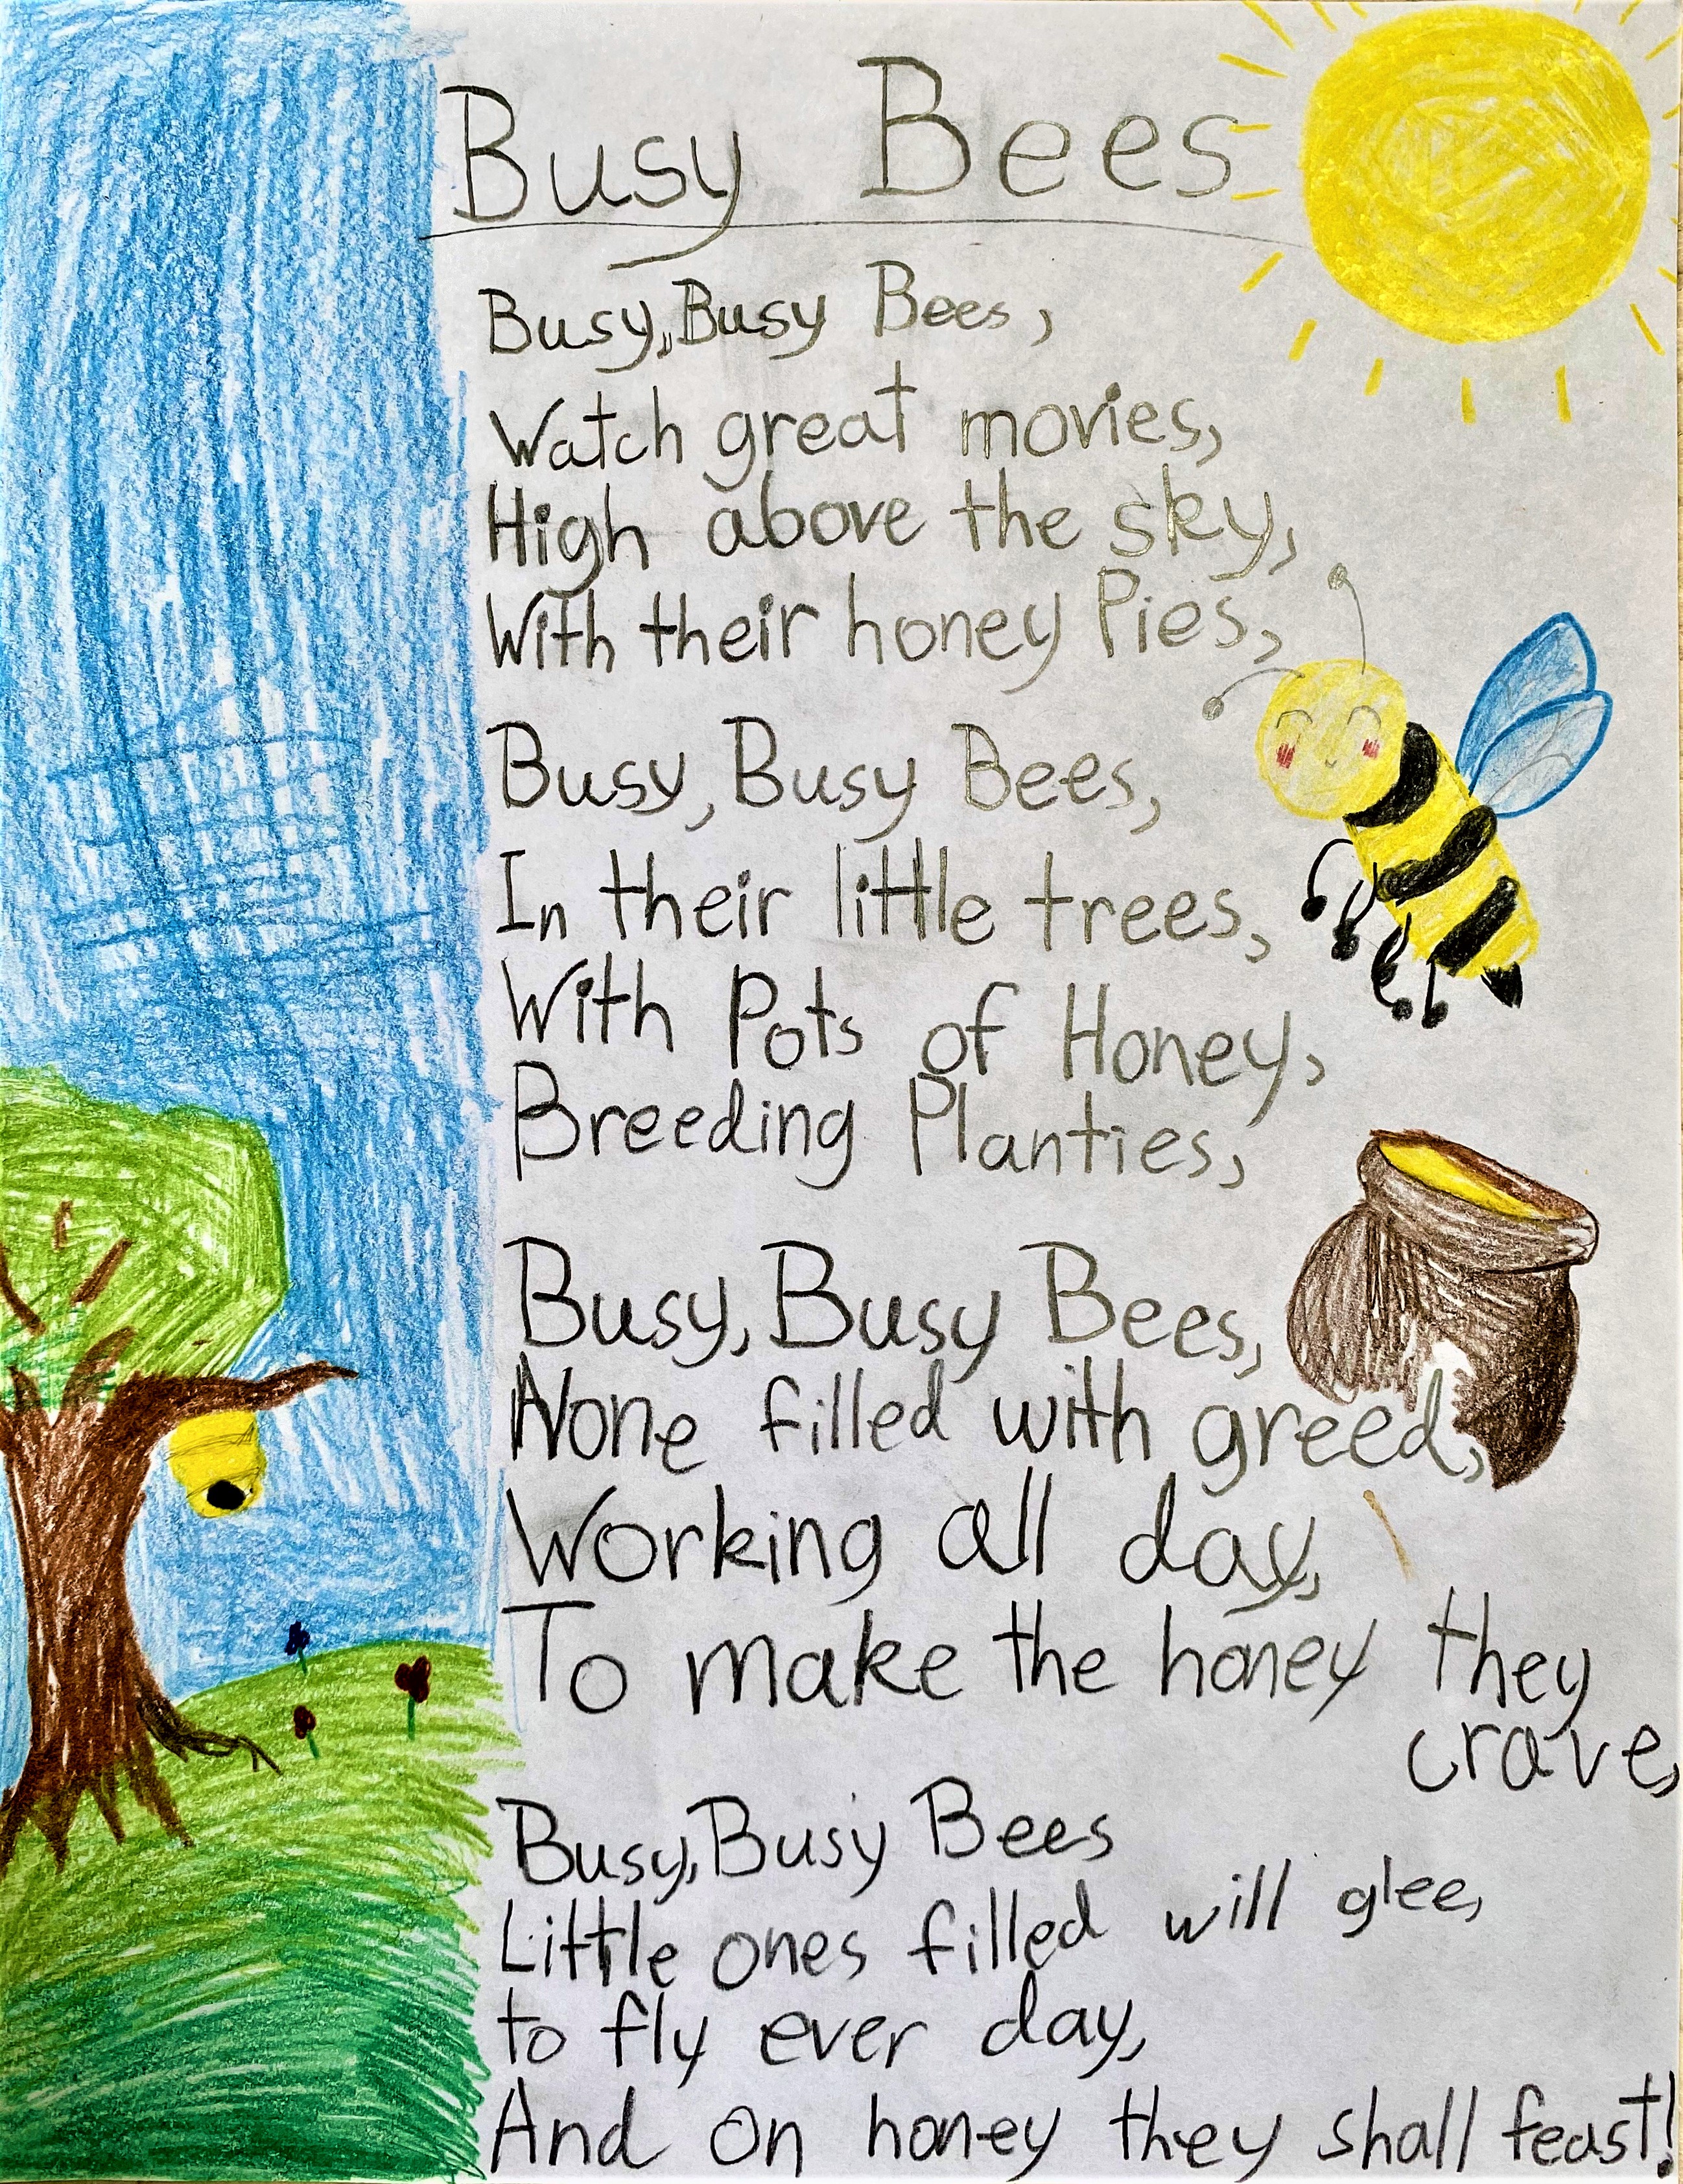 Busy Bees
Busy, Busy Bees,
Watch great movies,
High above the sky,
With their honey Pies,
Busy, Busy Bees,
In their little trees,
With Pots of Honey,
Breeding Planties,
Busy, Busy Bees,
None filled with greed,
Working all day,
To make the honey they
crave,
Busy, Busy Bees
Little ones filled will glee,
to fly ever day,
And on honey they shall feast!